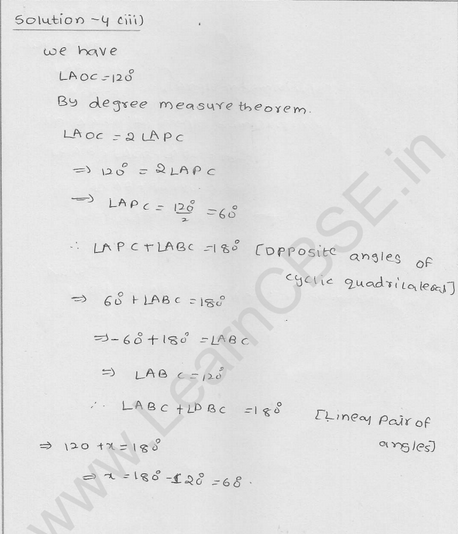 Solution -4 (iii)
we have
LAOC = 120°
By degree measure theorem.
LAOC = 2 LAPC
⇒ 120° = 2 LAPC
⇒ LAPC = 120°/2 = 60°
∴ LAPC + LABC = 180° [Opposite angles of
cyclic quadrilateral]
⇒ 60° + LABC = 180°
⇒ -60° + 180° = LABC
⇒ LABC = 120°
∴ LABC + LDBC = 180° [Linear pair of
angles]
⇒ 120 + x = 180°
⇒ x = 180° - 120° = 60°.
www.LearnCBSE.in